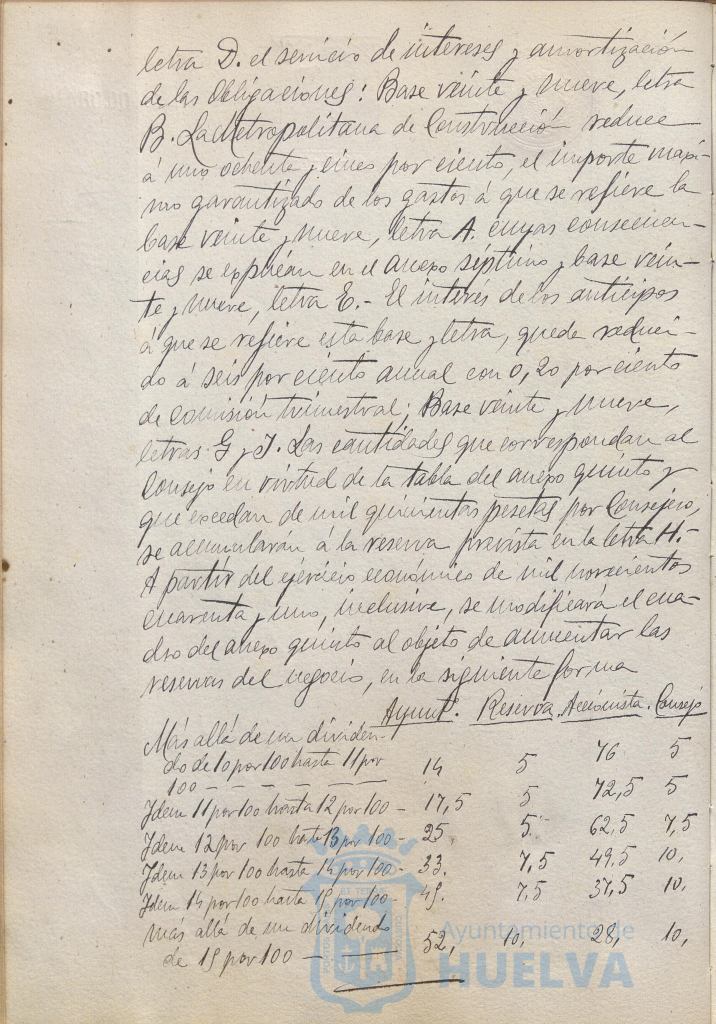 letra D. el servicio de intereses y amortización
de las Obligaciones: Base veinte y nueve, letra
B. La Metropolitana de Construcción reduce
á uno ochenta y cinco por ciento, el importe maxi-
mo garantizado de los gastos á que se refiere la
base veinte y nueve, letra A. cuyas consecuen-
cias se expresan en el anexo séptimo y base vein-
te y nueve, letra E.- El interés de los anticipos
á que se refiere esta base y letra, queda reduci-
do á seis por ciento anual con 0,20 por ciento
de comisión trimestral; Base veinte y nueve,
letras G y J. Las cantidades que correspondan al
Consejo en virtud de la tabla del anexo quinto y
que excedan de mil quinientas pesetas por Consejero,
se acumularán á la reserva prevista en la letra H.-
A partir del ejercicio económico de mil novecientos
cuarenta y uno, inclusive, se modificará el cua-
dro del anexo quinto al objeto de aumentar las
reservas del negocio, en la siguiente forma
Ayunt.º Reserva. Accionista. Consejo
Más allá de un dividen-
do de 10 por 100 hasta 11 por
100 - - - - - - 14 5 76 5
Idem 11 por 100 hasta 12 por 100 - 17,5 5 72,5 5
Idem 12 por 100 hasta 13 por 100 - 25 5. 62,5 7,5
Idem 13 por 100 hasta 14 por 100 - 33. 7,5 49,5 10,
Idem 14 por 100 hasta 15 por 100 - 45. 7,5 37,5 10,
Más allá de un dividendo
de 15 por 100 - 52, 10, 28, 10,
Ayuntamiento de
HUELVA